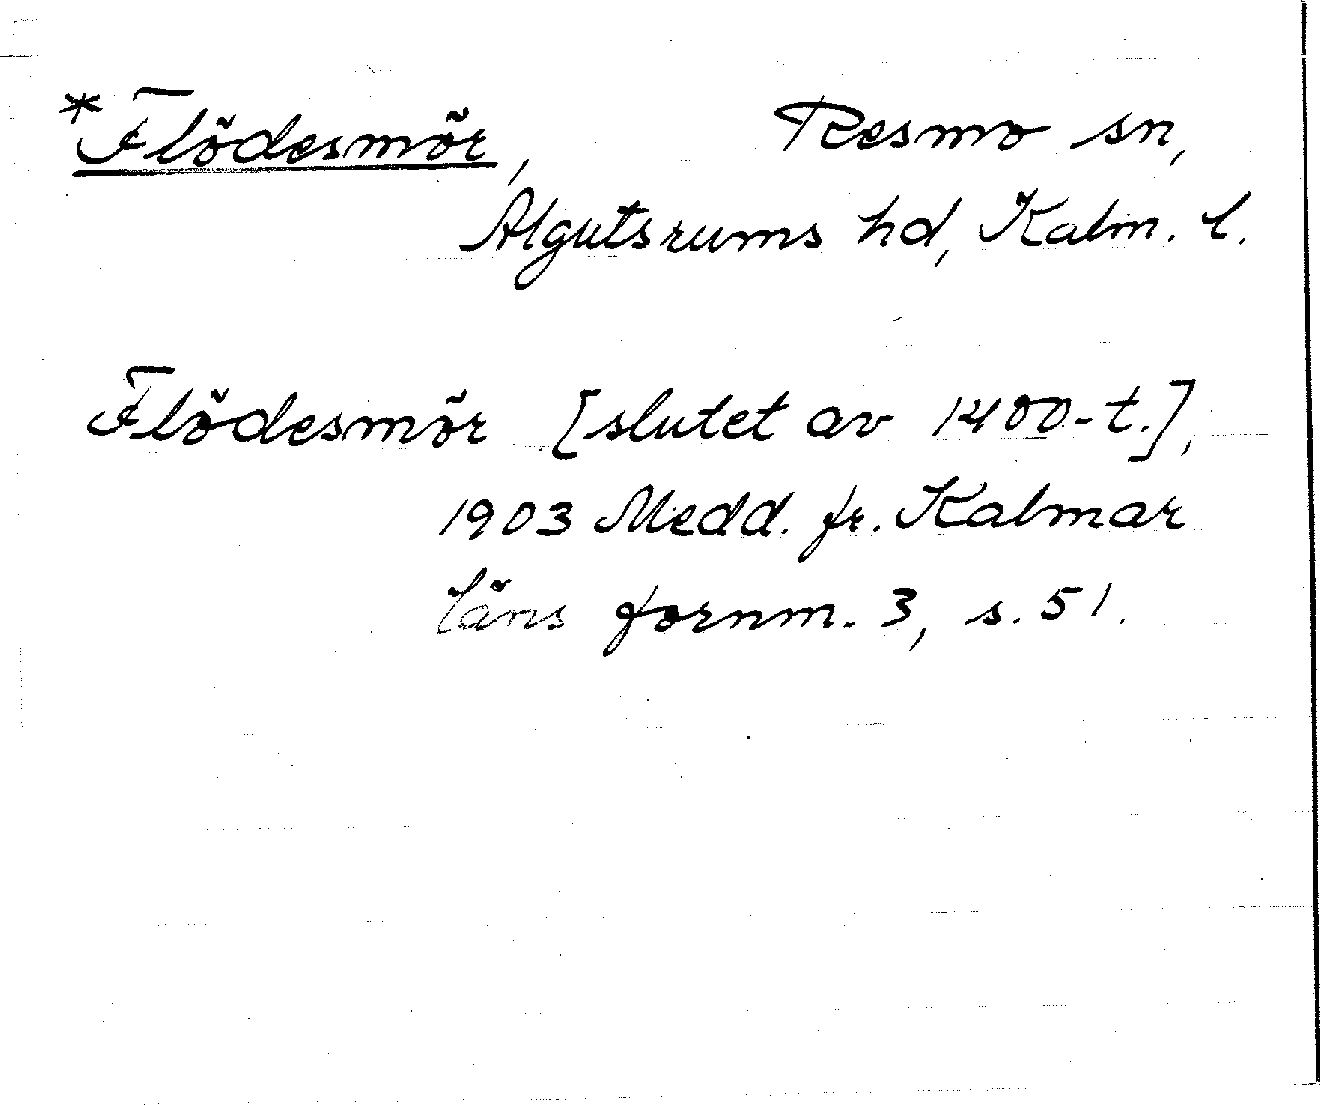 *Flödesmör, Resmo sn,
Algutsrums hd, Kalm. l.
Flödesmör [slutet av 1400-t.],
1903 Medd. fr. Kalmar
läns fornm. 3, s. 51.